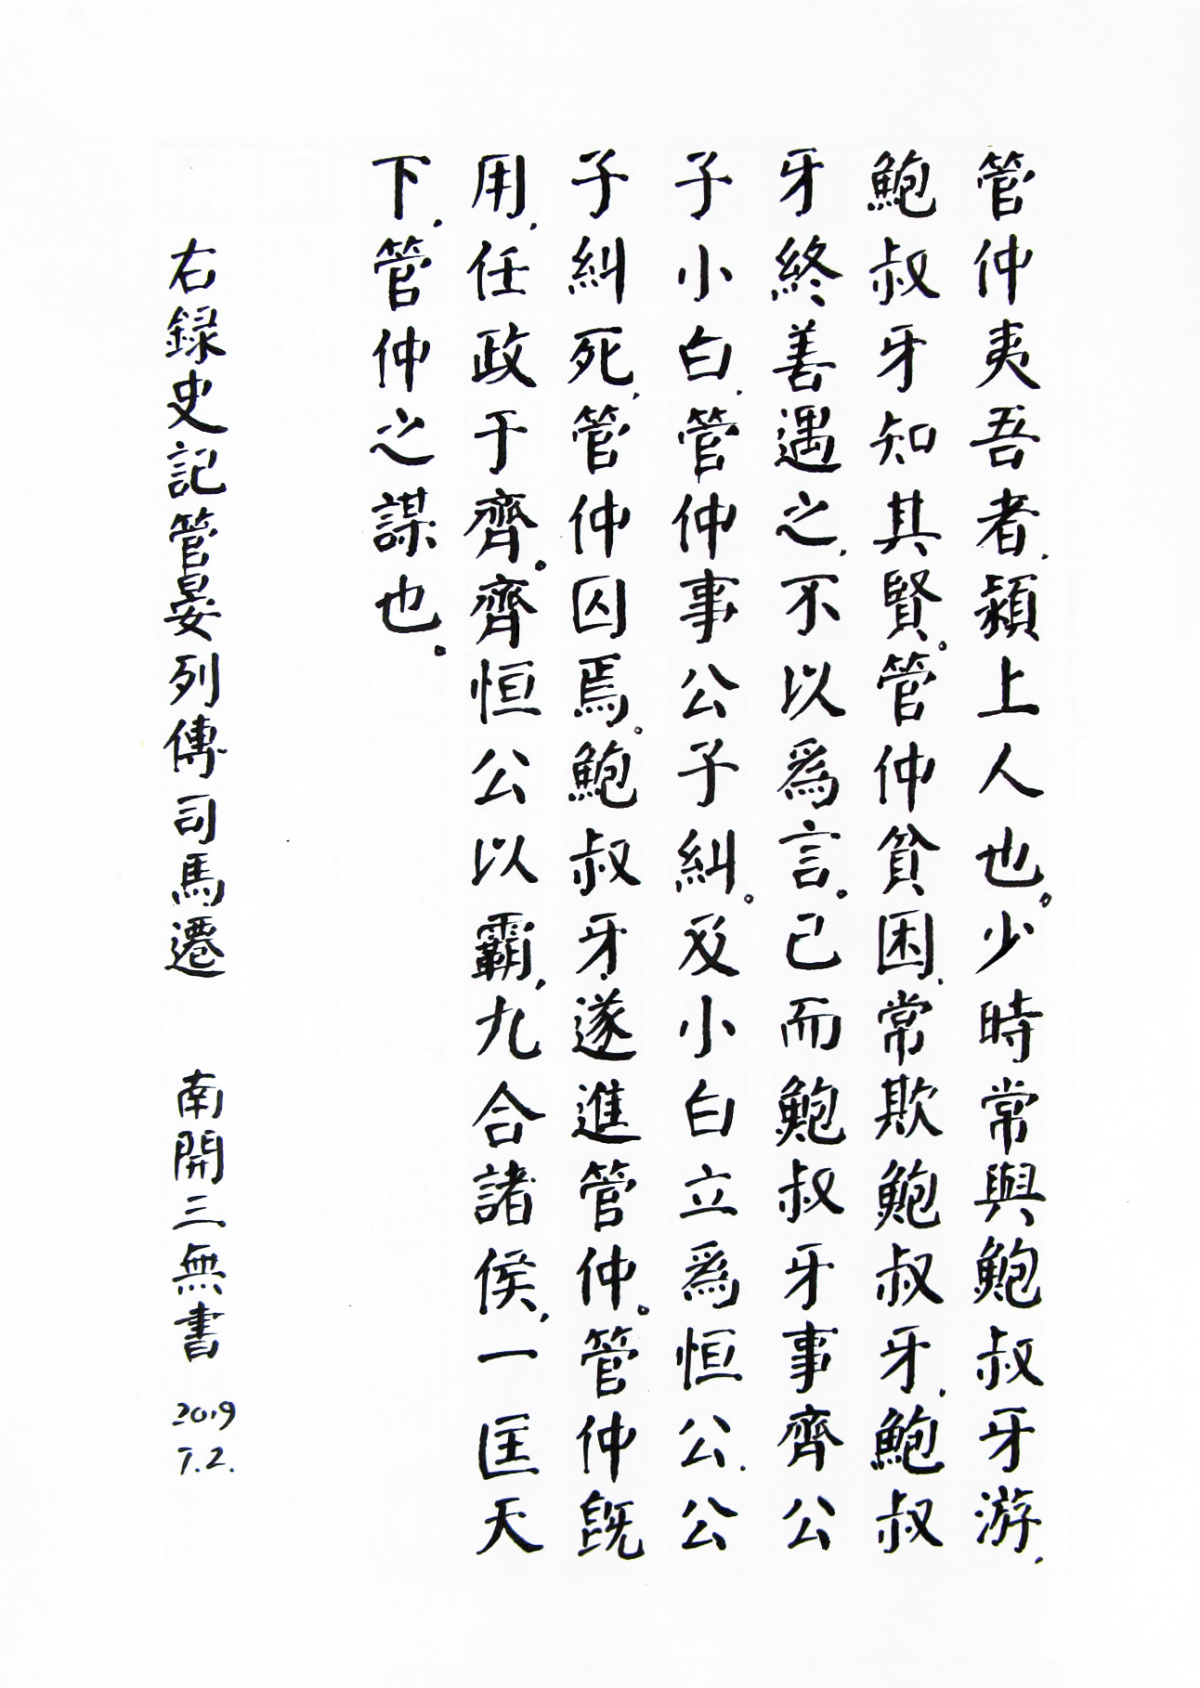 管仲夷吾者，潁上人也。少時常與鮑叔牙游，
鮑叔牙知其賢。管仲貧困，常欺鮑叔牙，鮑叔
牙終善遇之，不以爲言。已而鮑叔牙事齊公
子小白，管仲事公子糾。及小白立爲恒公，公
子糾死，管仲囚焉。鮑叔牙遂進管仲。管仲旣
用，任政于齊。齊恒公以霸，九合諸侯，一匡天
下，管仲之謀也。
右録史記管晏列傳司馬遷 南開三無書 2019 7.2.